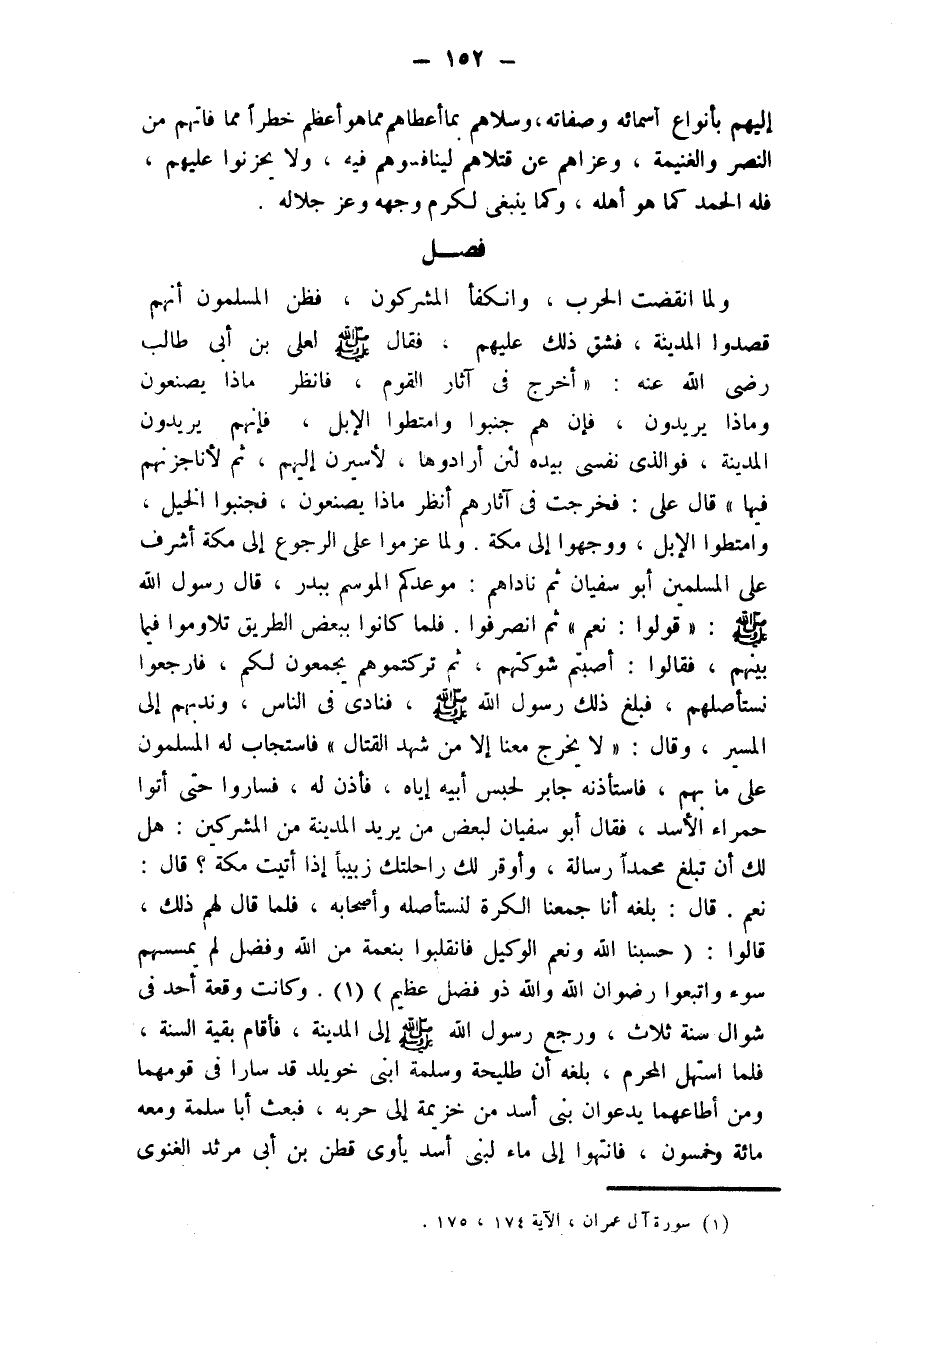 – ١٥٢ –
إليهم بأنواع آسمائه وصفاته، وسلاهم بما أعطاهم مما هو أعظم خطراً مما فاتهم من
النصر والغنيمة ، وعزاهم عن قتلاهم لينافسوهم فيه ، ولا يحزنوا عليهم ،
فله الحمد كما هو أهله ، وكما ينبغى لكرم وجهه وعز جلاله .
فصـــل
ولما انقضت الحرب ، وانكفأ المشركون ، فظن المسلمون أنهم
قصدوا المدينة ، فشق ذلك عليهم ، فقال ﷺ لعلى بن أبى طالب
رضى الله عنه : « أخرج فى آثار القوم ، فانظر ماذا يصنعون
وماذا يريدون ، فإن هم جنبوا وامتطوا الإبل ، فإنهم يريدون
المدينة ، فوالذى نفسى بيده لئن أرادوها ، لأسيرن إليهم ، ثم لأناجزنهم
فيها » قال على : فخرجت فى آثارهم أنظر ماذا يصنعون ، فجنبوا الخيل ،
وامتطوا الإبل ، ووجهوا إلى مكة . ولما عزموا على الرجوع إلى مكة أشرف
على المسلمين أبو سفيان ثم ناداهم : موعدكم الموسم ببدر ، قال رسول الله
ﷺ : « قولوا : نعم » ثم انصرفوا . فلما كانوا ببعض الطريق تلاوموا فيما
بينهم ، فقالوا : أصبتم شوكتهم ، ثم تركتموهم يجمعون لكم ، فارجعوا
نستأصلهم ، فبلغ ذلك رسول الله ﷺ ، فنادى فى الناس ، وندبهم إلى
المسير ، وقال : « لا يخرج معنا إلا من شهد القتال » فاستجاب له المسلمون
على ما بهم ، فاستأذنه جابر لحبس أبيه إياه ، فأذن له ، فساروا حتى أتوا
حمراء الأسد ، فقال أبو سفيان لبعض من يريد المدينة من المشركين : هل
لك أن تبلغ محمداً رسالة ، وأوقر لك راحلتك زبيباً إذا أتيت مكة ؟ قال :
نعم . قال : بلغه أنا جمعنا الكرة لنستأصله وأصحابه ، فلما قال لهم ذلك ،
قالوا : ( حسبنا الله ونعم الوكيل فانقلبوا بنعمة من الله وفضل لم يمسسهم
سوء واتبعوا رضوان الله والله ذو فضل عظيم ) (١) . وكانت وقعة أحد فى
شوال سنة ثلاث ، ورجع رسول الله ﷺ إلى المدينة ، فأقام بقية السنة ،
فلما استهل المحرم ، بلغه أن طليحة وسلمة ابنى خويلد قد سارا فى قومهما
ومن أطاعهما يدعوان بنى أسد من خزيمة إلى حربه ، فبعث أبا سلمة ومعه
مائة وخمسون ، فانتهوا إلى ماء لبنى أسد يأوى قطن بن أبى مرثد الغنوى
(١) سورة آل عمران ، الآية ١٧٤ ، ١٧٥ .